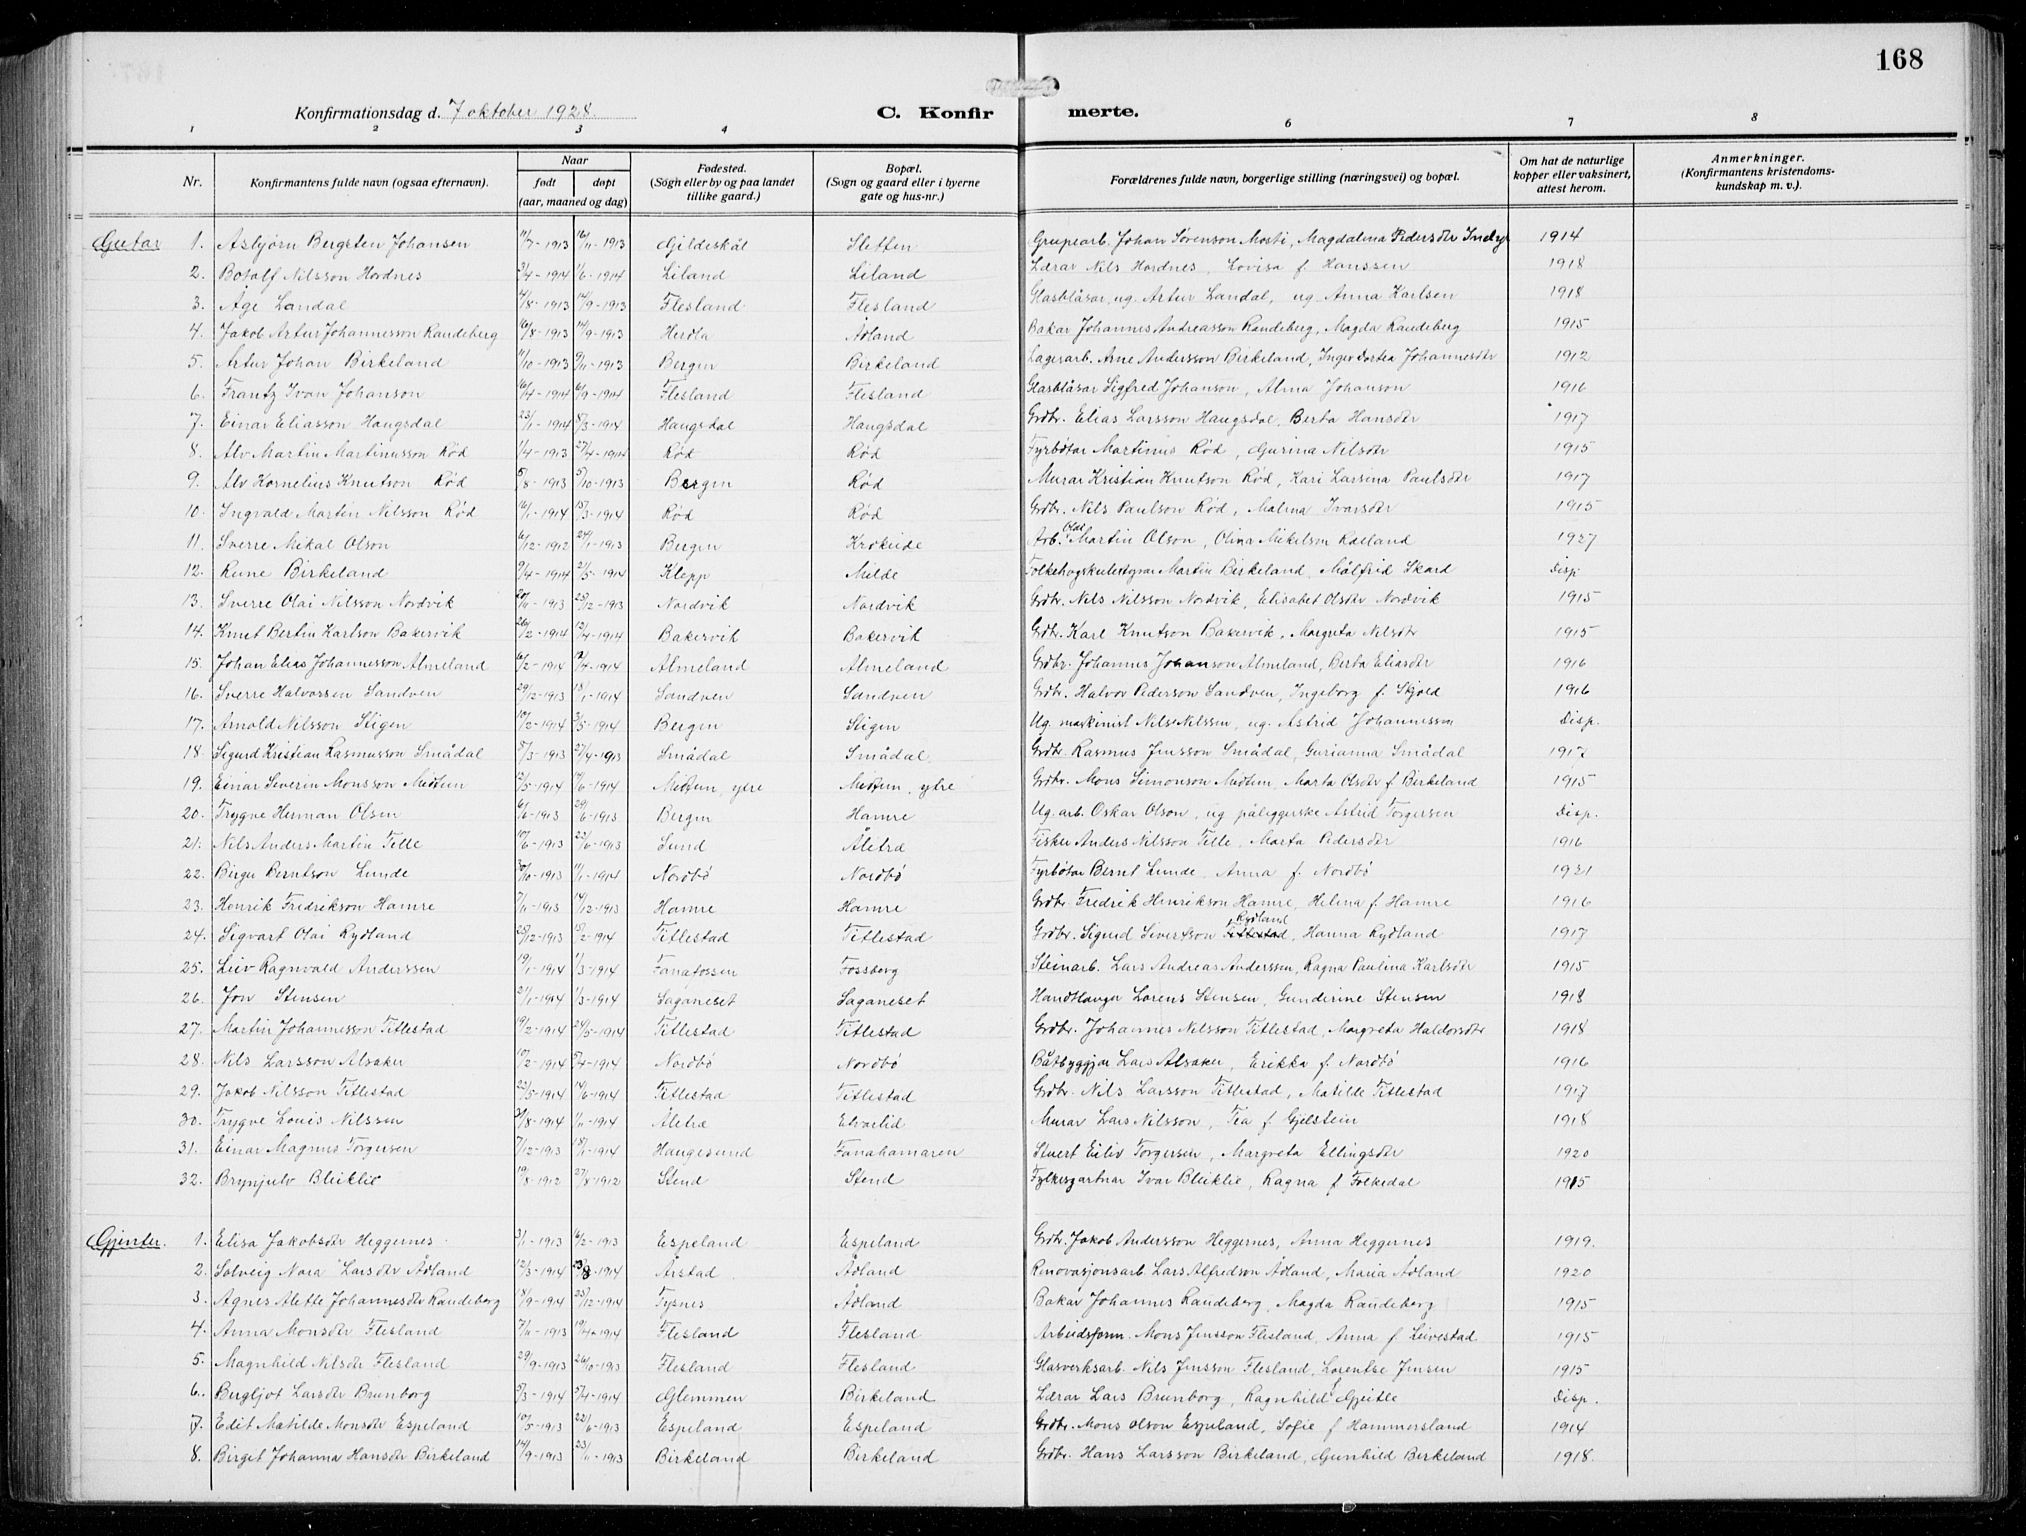 168
Konfirmationsdag d. 7 oktober 1928. C. Konfir merte.
1 2 3 4 5 6 7 8
Nr. Konfirmantens fulde navn (ogsaa efternavn). Naar født døpt (aar, maaned og dag) Fødested. (Sogn eller by og paa landet tillike gaard.) Bopæl. (Sogn og gaard eller i byerne gate og hus-nr.) Forældrenes fulde navn, borgerlige stilling (næringsvei) og bopæl. Om hat de naturlige kopper eller vaksinert, attest herom. Anmerkninger. (Konfirmantens kristendomskundskap m. v.).
Gutar 1. Asbjørn Bergsten Johansen 11/7-1913 16/11-1913 Gildeskål Sletten Grupearb. Johan Sørenson Mosti, Magdalena Pedersdtr 1914
2. Botolf Nilsson Hordnes 3/4-1914 1/6-1914 Liland Liland Lærar Nils Hordnes, Lovisa f. Hanssen 1918
3. Åge Landal 4/8-1913 14/9-1913 Flesland Flesland Glasblåsar, ug. Artur Landal, ug. Anna Karlsen 1918
4. Jakob Artur Johannesson Randeberg 6/8-1913 14/9-1913 Herdla Ådland Bakar Johannes Andreasson Randeberg, Magda Randeberg 1915
5. Artur Johan Birkeland 11/10-1913 9/11-1913 Bergen Birkeland Lagerarb. Arne Andersson Birkeland, Inger Dortea Johannesdtr 1912
6. Frantz Ivan Johanson 16/4-1914 6/9-1914 Flesland Flesland Glasblåsar Sigfred Johanson, Alma Johanson 1916
7. Einar Eliasson Haugsdal 23/1-1914 8/3-1914 Haugsdal Haugsdal Grdbr. Elias Larsson Haugsdal, Berta Hansdtr 1917
8. Alv Martin Martinusson Rød 1/4-1913 27/4-1914 Rød Rød Fyrbøtar Martinus Rød, Gurina Nilsdtr 1915
9. Alv Kornelius Knutson Rød 5/8-1913 5/10-1913 Bergen Rød Murar Kristian Knutson Rød, Kari Larsina Paulsdtr 1917
10. Ingvald Martin Nilsson Rød 16/1-1914 15/3-1914 Rød Rød Grdbr. Nils Paulson Rød, Malina Ivarsdtr 1915
11. Sverre Mikal Olson 6/12-1912 24/1-1913 Bergen Krokeide Arb. Olai Martin Olson, Olina Mikelson Kalland 1927
12. Rune Birkeland 9/4-1914 2/5-1914 Klepp Milde Folkehøgskulestyrar Martin Birkeland, Målfrid Skard Disp
13. Sverre Olai Nilsson Nordvik 20/11-1913 28/12-1913 Nordvik Nordvik Grdbr. Nils Nilsson Nordvik, Elisabet Olsdtr Nordvik 1915
14. Knut Bertin Karlson Bakervik 26/2-1914 12/4-1914 Bakervik Bakervik Grdbr. Karl Knutson Bakervik, Margreta Nilsdtr 1915
15. Johan Elias Johannesson Almeland 6/2-1914 12/4-1914 Almeland Almeland Grdbr. Johannes Johanson Almeland, Berta Eliasdtr 1916
16. Sverre Halvorsen Sandven 29/12-1913 18/1-1914 Sandven Sandven Grdbr. Halvor Pederson Sandven, Ingeborg f. Skjold 1916
17. Arnold Nilsson Stigen 10/2-1914 3/5-1914 Bergen Stigen Ug. maskinist Nils Nilssen, ug. Astrid Johannesson Disp.
18. Sigurd Kristian Rasmusson Smådal 8/3-1913 27/4-1913 Smådal Smådal Grdbr. Rasmus Jensson Smådal, Gurianna Smådal 1917
19. Einar Severin Monsson Midtun 12/5-1914 14/6-1914 Midtun, ytre Midtun, ytre Grdbr. Mons Simonson Midtun, Marta Olsdtr f. Birkeland 1915
20. Trygve Herman Olsen 6/6-1913 29/6-1913 Bergen Hamre Ug. arb. Oskar Olson, ug påleggerske Astrid Torgersen Disp.
21. Nils Anders Martin Telle 10/6-1913 22/6-1913 Sund Åletræ Fisker Anders Nilsson Telle, Marta Pedersdtr 1916
22. Birger Berntson Lunde 30/10-1913 11/1-1914 Nordbø Nordbø Fyrbøtar Bernt Lunde, Anna f. Nordbø 1921
23. Henrik Fredrikson Hamre 7/11-1913 14/12-1913 Hamre Hamre Grdbr. Fredrik Henrikson Hamre, Helena f. Hamre 1916
24. Sigvart Olai Rydland 28/12-1913 8/2-1914 Titlestad Titlestad Grdbr. Sigurd Sivertson Titlestad Rydland, Hanna Rydland 1917
25. Leiv Ragnvald Anderssen 19/1-1914 1/3-1914 Fanafossen Fossberg Steinarb. Lars Andreas Anderssen, Ragna Paulina Karlsdtr 1915
26. Jon Stensen 21/1-1914 1/3-1914 Laganeset Laganeset Handtlangar Lorens Stensen, Gunderine Stensen 1918
27. Martin Johannesson Titlestad 19/2-1914 24/5-1914 Titlestad Titlestad Grdbr. Johannes Nilsson Titlestad, Margreta Haldorsdtr 1918
28. Nils Larsson Alsaker 10/2-1914 5/4-1914 Nordbø Nordbø Båtbyggjar Lars Alsaker, Erikka f. Nordbø 1916
29. Jakob Nilsson Titlestad 22/5-1914 14/6-1914 Titlestad Titlestad Grdbr. Nils Larsson Titlestad, Matilde Titlestad 1917
30. Trygve Louis Nilssen 31/8-1914 1/11-1914 Åletræ Elvarlid Murar Lars Nilsson, Tea f. Gjelstein 1918
31. Einar Magnus Torgersen 7/12-1913 18/1-1914 Haugesund Fanahamaren Stuert Eiliv Torgersen, Margreta Ellingsdtr 1920
32. Brynjulv Bleiklie 19/8-1912 27/8-1912 Stend Stend Fylkesgartnar Ivar Bleiklie, Ragna f Folkedal 1915
Gjenter. 1. Elisa Jakobsdtr Heggernes 3/1-1913 16/2-1913 Espeland Espeland Grdbr. Jakob Andersson Heggernes, Anna Heggernes 1919.
2. Solveig Nora Larsdtr Ådland 12/3-1914 23/8-1914 Årstad Ådland Renovasjonsarb. Lars Alfredson Ådland, Maria Ådland 1920
3. Agnes Alette Johannesdtr Randeberg 18/9-1914 25/12-1914 Tysnes Ådland Bakar Johannes Randeberg, Magda Randeberg 1915
4. Anna Monsdtr Flesland 7/11-1913 19/4-1914 Flesland Flesland Arbeidsform. Mons Jensson Flesland, Anna f Leivestad 1915
5. Magnhild Nilsdtr Flesland 29/9-1913 26/10-1913 Flesland Flesland Glasverksarb. Nils Jensson Flesland, Lorentse Jensen 1915
6. Bergljot Larsdtr Brunborg 5/3-1914 5/4-1914 Glemmen Birkeland Lærar Lars Brunborg, Ragnhild f Gjeitle Disp.
7. Edit Matilde Monsdtr Espeland 10/5-1913 22/6-1913 Espeland Espeland Grdbr. Mons Olson Espeland, Sofie f Hammersland 1914
8. Birget Johanna Hansdtr Birkeland 14/9-1913 23/11-1913 Birkeland Birkeland Grdbr. Hans Larsson Birkeland, Gunhild Birkeland 1918.